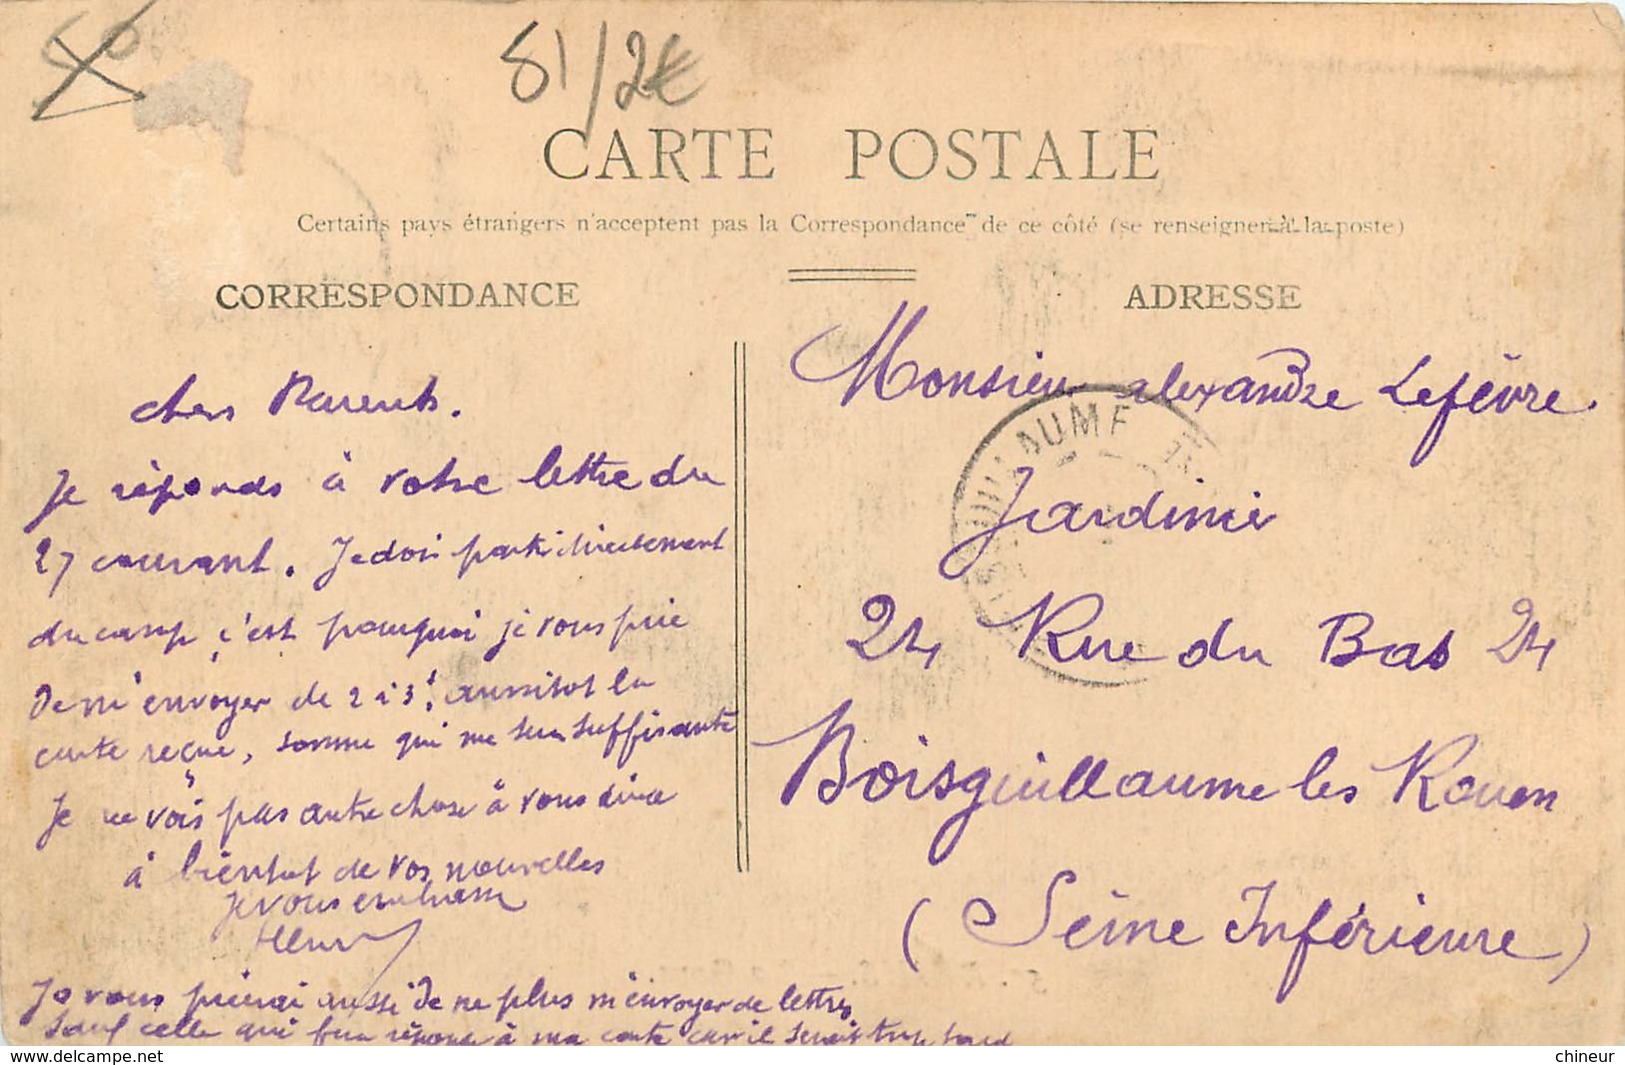 81/2€
CARTE POSTALE
Certains pays étrangers n'acceptent pas la Correspondance de ce côté (se renseigner à la poste)
CORRESPONDANCE
cher Parents.
Je réponds à votre lettre du
27 courant. Je dois parti directement
du camp c'est pourquoi je vous prie
de m'envoyer de 2 à 3f aussitot la
carte reçue, somme qui me sera suffisante
Je ne vois pas autre chose à vous dire
à bientot de vos nouvelles
Je vous embrasse
Henri
Je vous prierai aussi de ne plus m'envoyer de lettres
sauf celle qui fera répons à ma carte car il serait trop tard
ADRESSE
Monsieur alexandre Lefèvre
Jardinié
24 Rue du Bas 24
Boisguillaume les Rouen
(Seine Inférieure)
GUILLAUME
delcampe.net
chineur